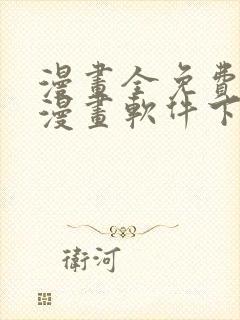 漫畫全免費
漫畫軟件下
衛河